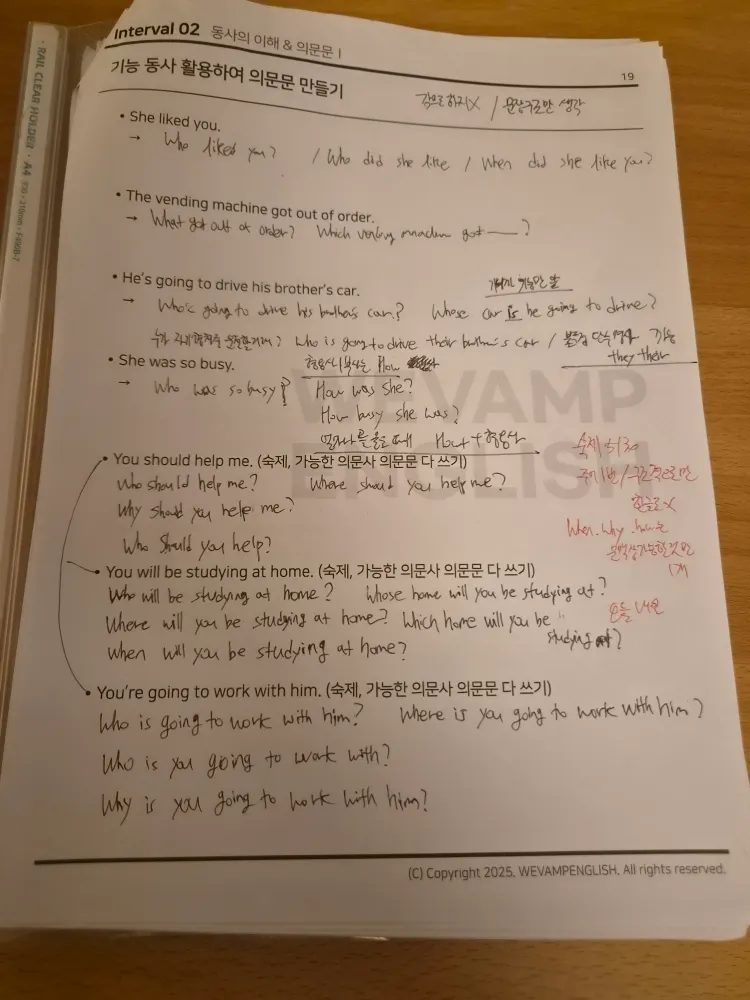 · RAIL CLEAR HOLDER · A4
Interval 02 동사의 이해 & 의문문 I
19
기능 동사 활용하여 의문문 만들기
각으로 하지X / 문장구조만 생각
• She liked you.
→ Who liked you? / Who did she like / When did she like you?
• The vending machine got out of order.
→ What got out of order? Which vending machine got — ?
• He's going to drive his brother's car.
→ Who's going to drive his brother's car? Whose car is he going to drive?
Who is going to drive their brother's car / 가능
they their
• She was so busy.
How
→ Who was so busy? How was she?
How busy she was?
How + 형용사
WEVAMP
ENGLISH
• You should help me. (숙제, 가능한 의문사 의문문 다 쓰기)
Who should help me? Where should you help me?
Why should you help me?
Who should you help?
숙제
한글로 X
When. why.
1개
• You will be studying at home. (숙제, 가능한 의문사 의문문 다 쓰기)
Who will be studying at home? Whose home will you be studying at?
Where will you be studying at home? Which home will you be "
studying at?
when will you be studying at home?
• You're going to work with him. (숙제, 가능한 의문사 의문문 다 쓰기)
Who is going to work with him? Where is you going to work with him?
Who is you going to work with?
Why is you going to work with him?
(C) Copyright 2025. WEVAMPENGLISH. All rights reserved.